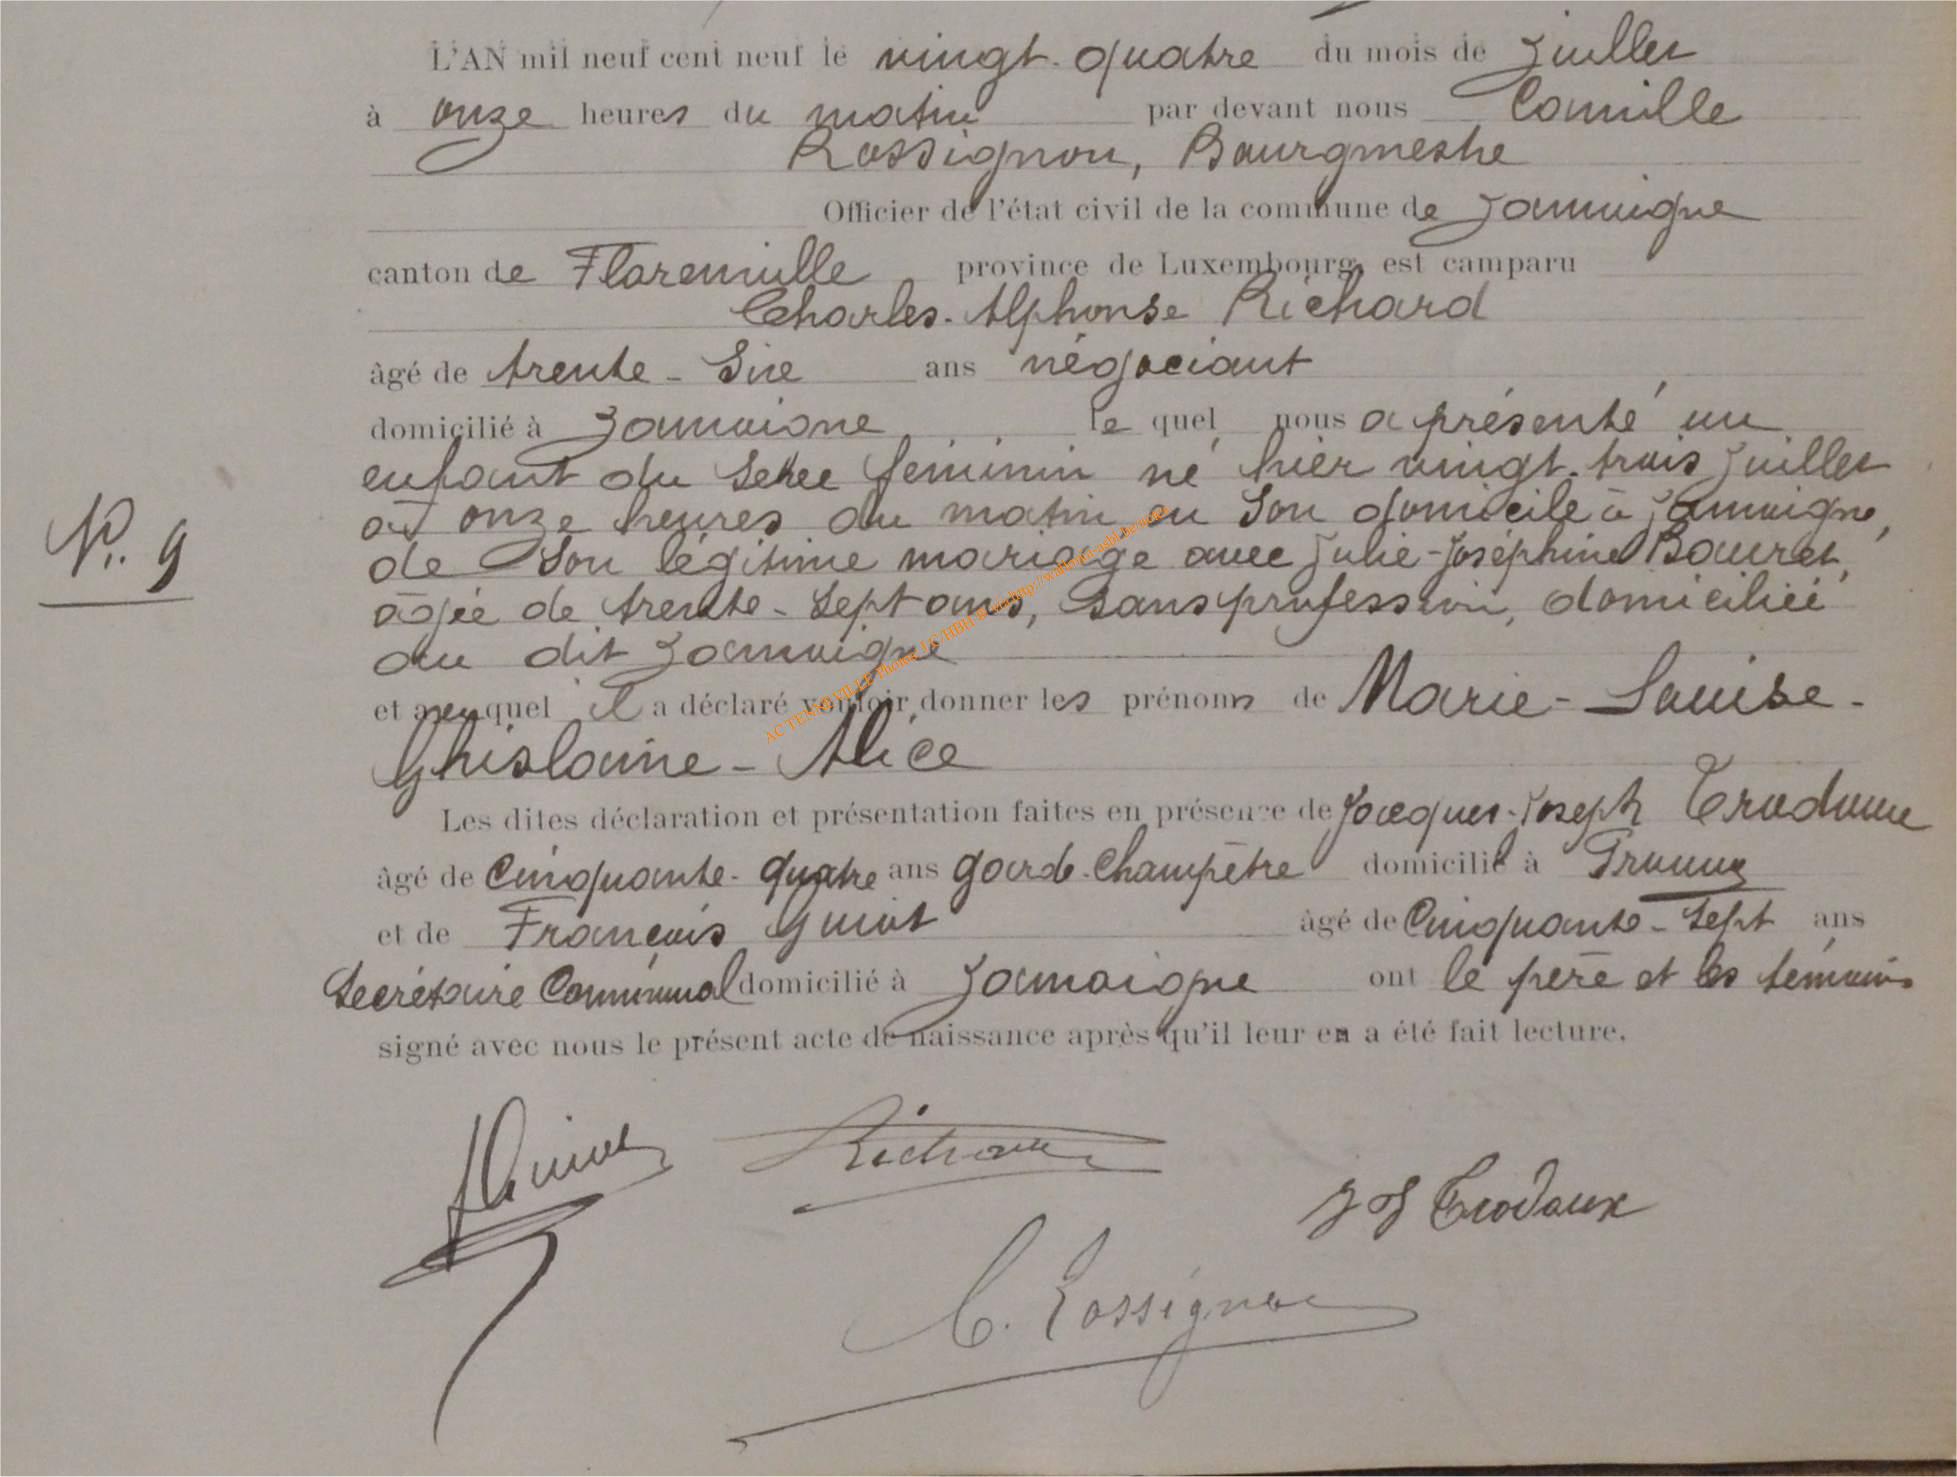 L'AN mil neuf cent neuf le vingt-quatre du mois de Juillet
à onze heures du matin par devant nous Camille
Rossignon, Bourgmestre
Officier de l'état civil de la commune de Jamoigne
canton de Florenville province de Luxembourg, est camparu
Charles-Alphonse Richard
âgé de trente-six ans négociant
domicilié à Jamoigne le quel nous a présenté un
enfant du sexe féminin né hier vingt-trois Juillet
à onze heures du matin en son domicile à Jamoigne,
de son légitime mariage avec Julie-Joséphine Bauret,
âgée de trente-sept ans, sans profession, domiciliée
au dit Jamoigne
N°. 9
et auquel il a déclaré vouloir donner les prénoms de Marie-Louise-
Ghislaine-Alice
Les dites déclaration et présentation faites en présence de Jacques-Joseph Trodoux
âgé de Cinquante-quatre ans garde-Champêtre domicilié à
et de François Guiot âgé de Cinquante-sept ans
Secrétaire Communal domicilié à Jamoigne ont le père et les témoins
signé avec nous le présent acte de naissance après qu'il leur en a été fait lecture.
Richard
J J Trodoux
C. Rossignon